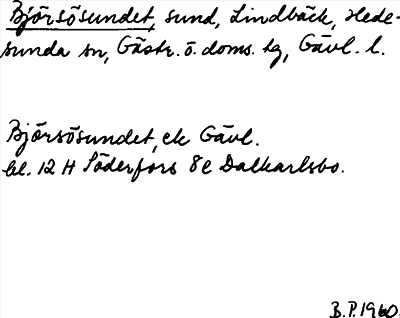 Björsösundet, sund, Lindbäck, Hede-
sunda sn, Gästr. ö. doms. tg, Gävl. l.
Björsösundet, ek Gävl.
bl. 12 H Söderfors 8e Dalkarlsbo.
B.P. 1960.